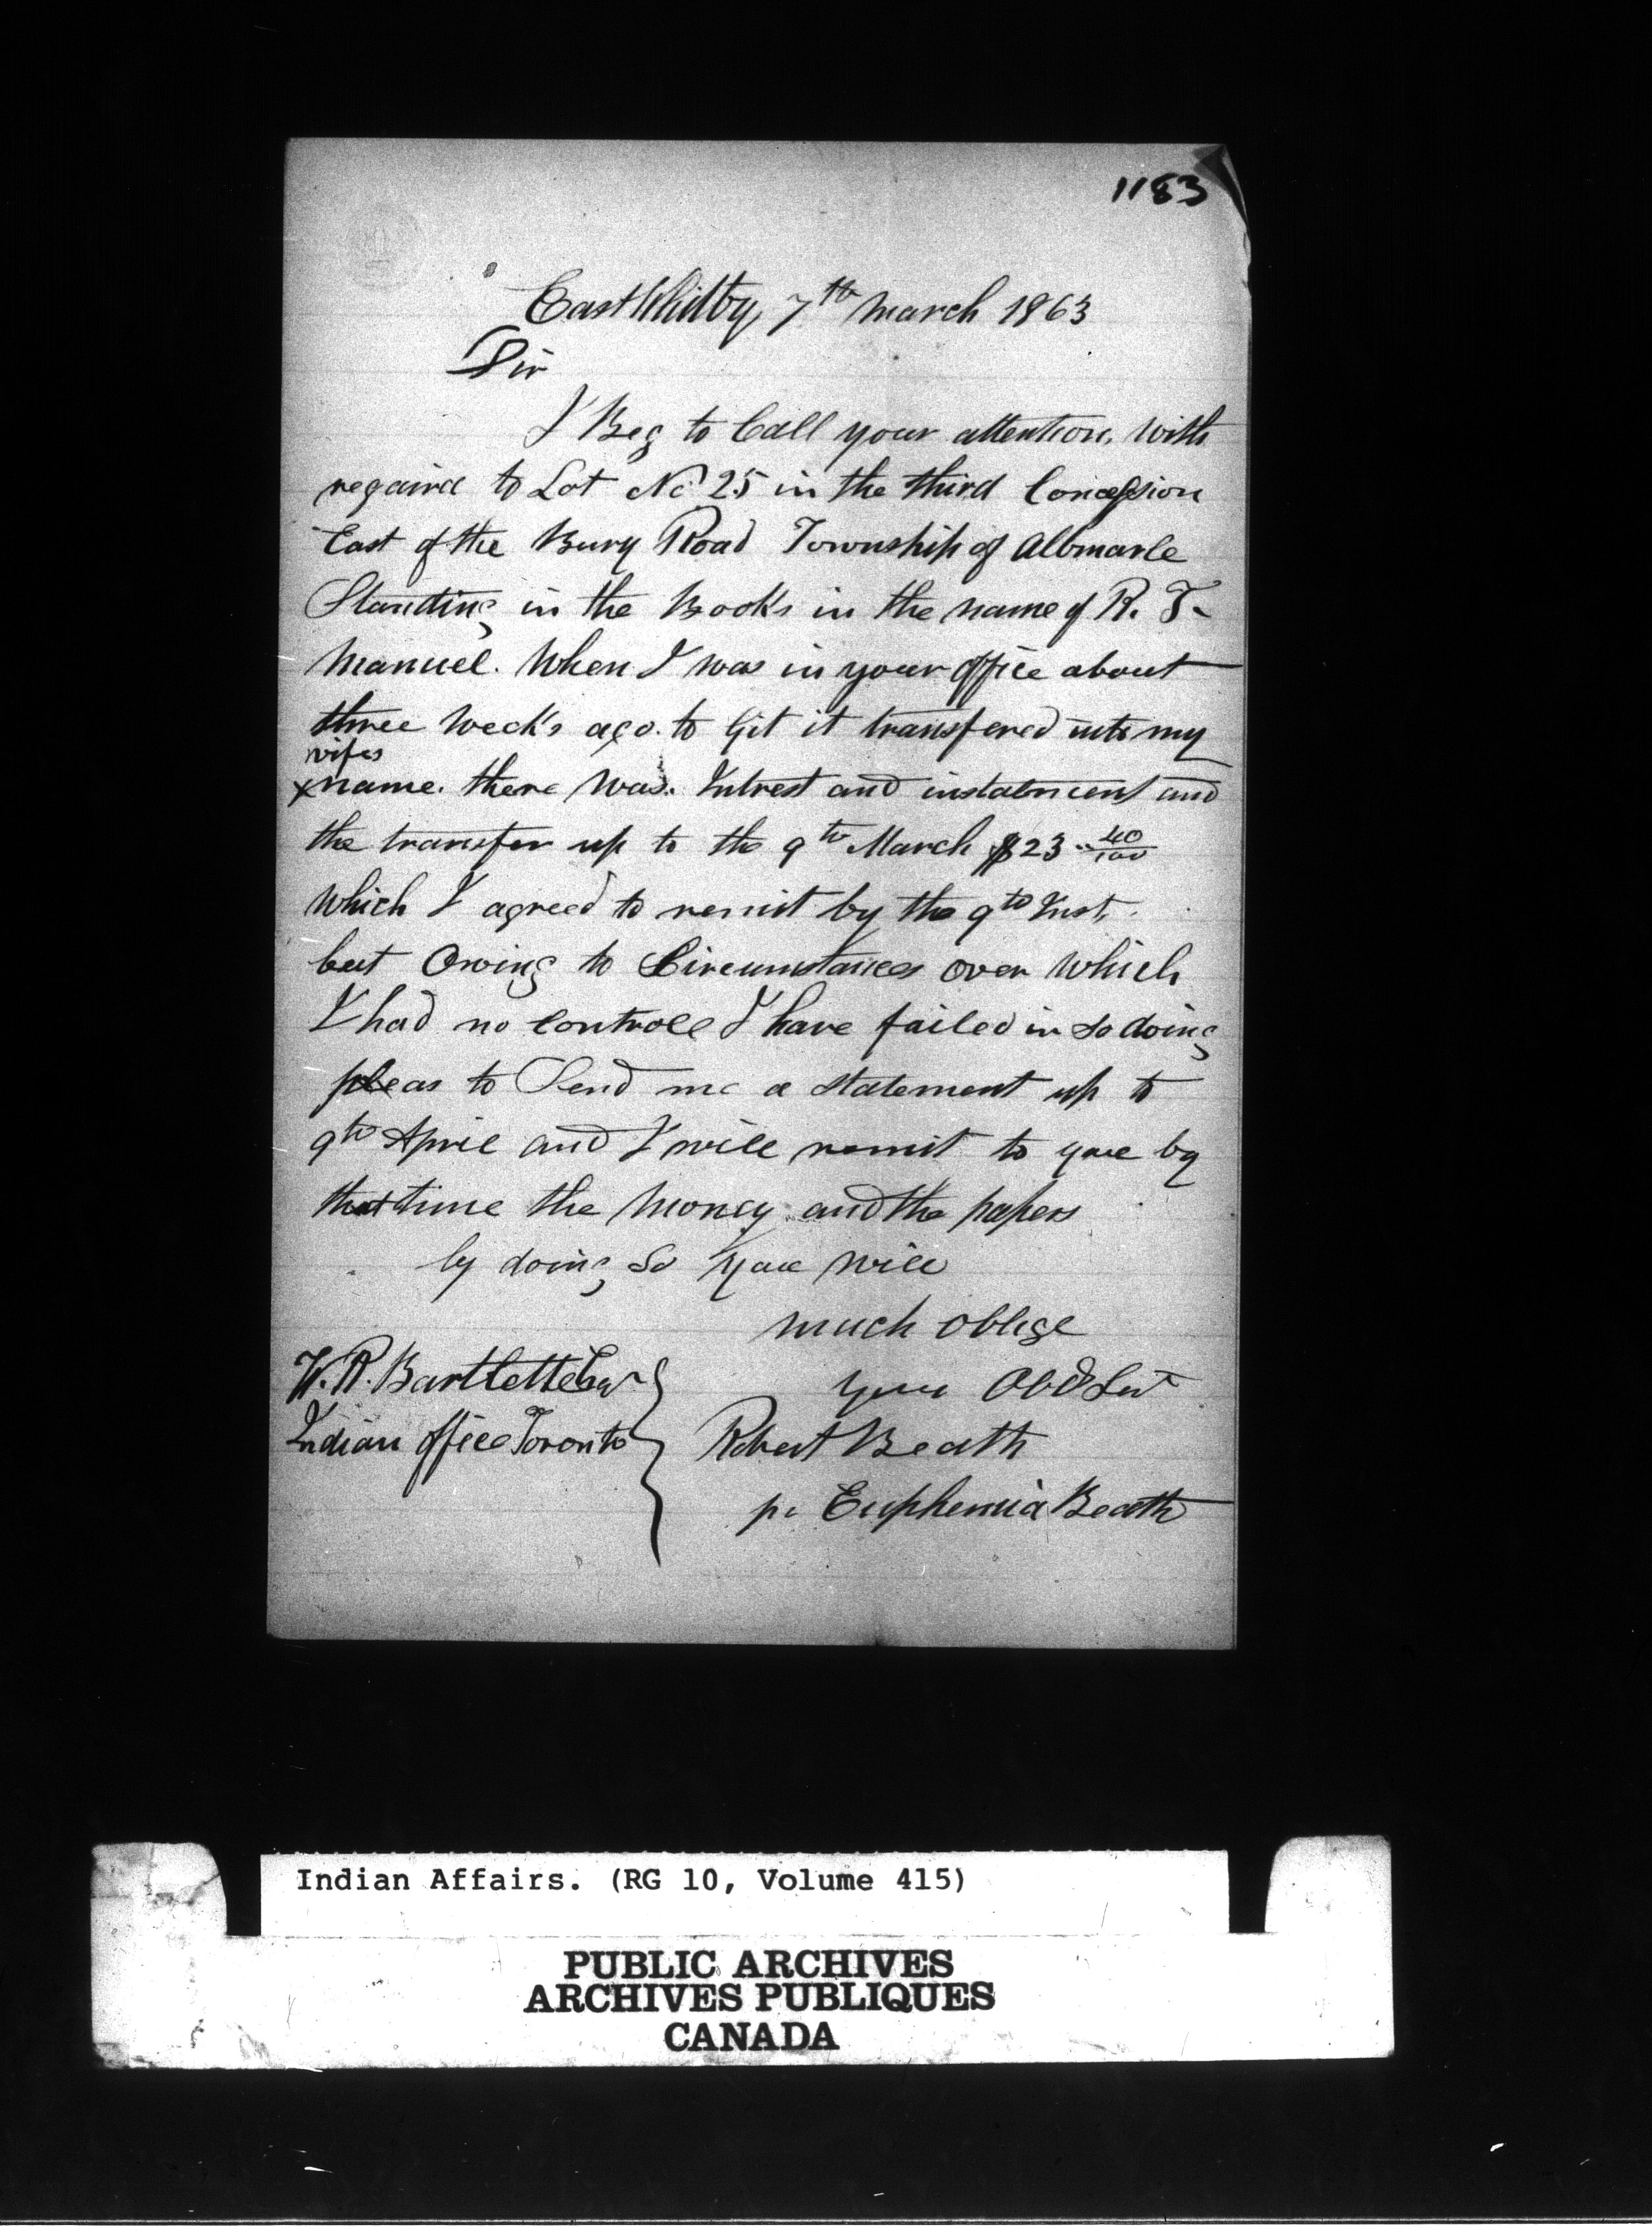 1183
East Whitby 7th March 1863
Sir
I Beg to Call your attention, with
regaird to Lot No 25 in the third Concession
East of the Bury Road Township of Albmarle
Standing in the Books in the name of R. T.
Manuel. When I was in your office about
three Week's ago. to Git it transfered into my
wifes
x name. there was. Intrest and instalment and
the transfer up to the 9th March $23 40/100
Which I agreed to remit by the 9th Inst.
but Owing to Circumstances over which
I had no Controll I have failed in so doing
pleas to Send me a statement up to
9th April and I will remit to you by
that time the Money and the papers
by doing so you will
much oblige
W. R. Bartlett Esqr
your Obd Svt
Indian office Toronto
Robert Beath
pr Euphemia Beath
Indian Affairs. (RG 10, Volume 415)
PUBLIC ARCHIVES
ARCHIVES PUBLIQUES
CANADA